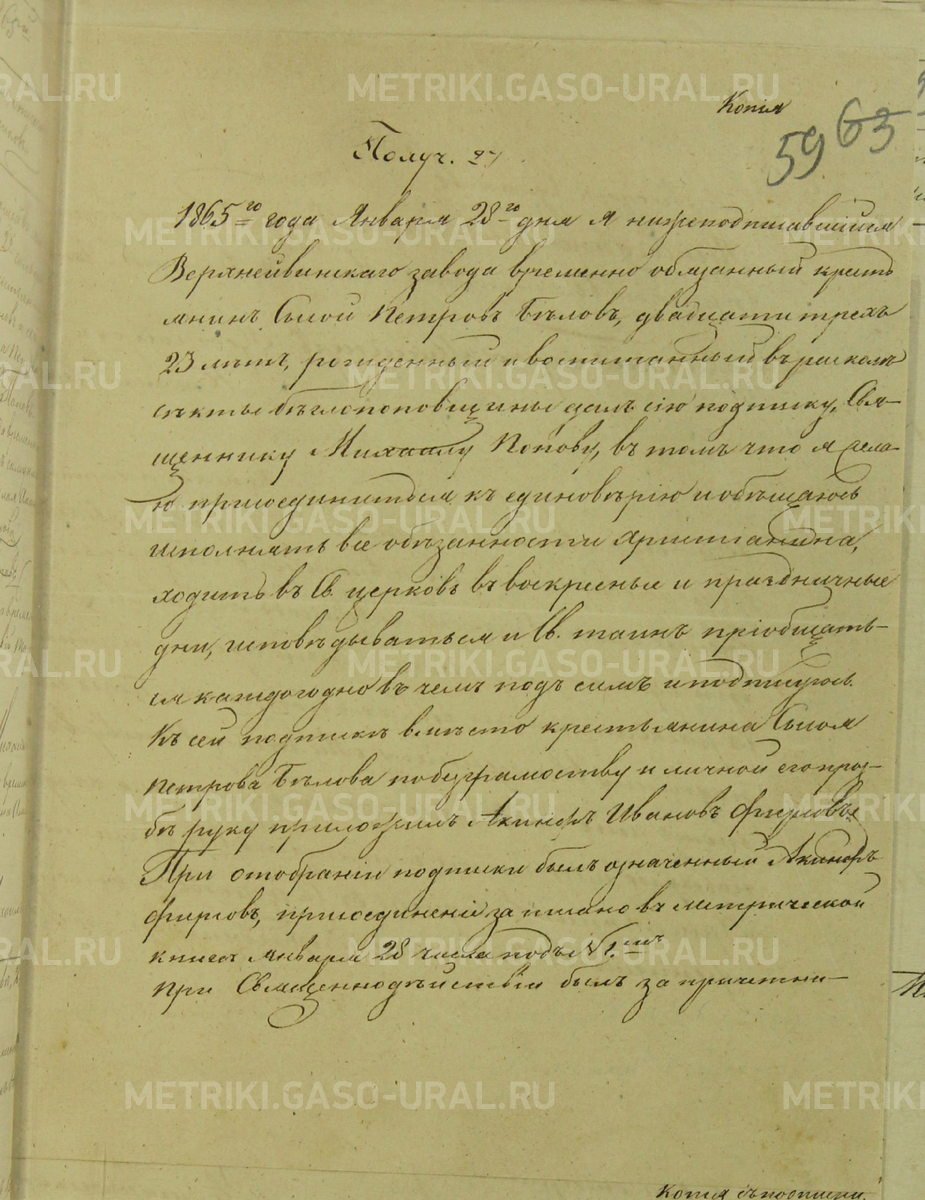 Копія
59 63
Получ. 27
1865го года Января 28го дня я нижеподписавшійся
Верхнейвинскаго завода временно обязанный кресть
янинъ Сысой Петровъ Бѣловъ, двадцати трехъ
23 лѣтъ, рожденный и воспитанный въ расколѣ
секты бѣглопоповщины далъ сію подписку, Свя-
щеннику Михаилу Попову, въ томъ что я жела-
ю присоединиться къ единовѣрію и обѣщаюсь
исполнять все обязанности християнина,
ходить въ Св. церковь въ воскресные и праздничные
дни, исповѣдываться и Св. таинъ пріобщать-
ся каждогодно въ чемъ подъ симъ и подпишусь.
Къ сей подпискѣ вместо крестьянина Сысоя
Петрова Бѣлова по безграмотству и личной его прозь-
бѣ руку приложилъ Акинфъ Ивановъ Фирсовъ.
При отобраніи подписки былъ означенный Акинфъ
Фирсовъ, присоединеніе записано въ метрической
книге января 28 числа подъ № 1мъ
При Священнодѣйствіи былъ за причетни-
METRIKI.GASO-URAL.RU